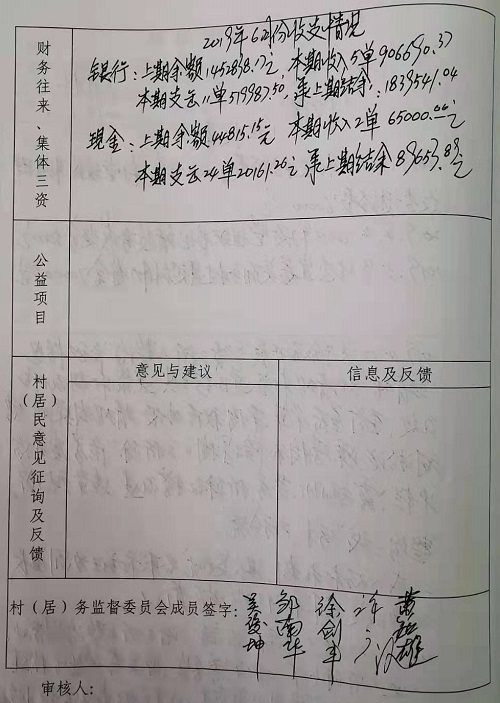 2019年6月份收支情况
财务往来、集体三资
银行:上期余额1452838.17元,本期收入5单906690.37
本期支出11单519987.50,承上期结余:1839541.04
现金:上期余额44815.15元 本期收入2单 65000.00元
本期支出24单20161.26元 承上期结余89653.89元
公益项目
意见与建议 信息及反馈
村(居)民意见征询及反馈
村(居)务监督委员会成员签字: 吴俊坤 邹南华 徐剑平 许 黄 雄
审核人: